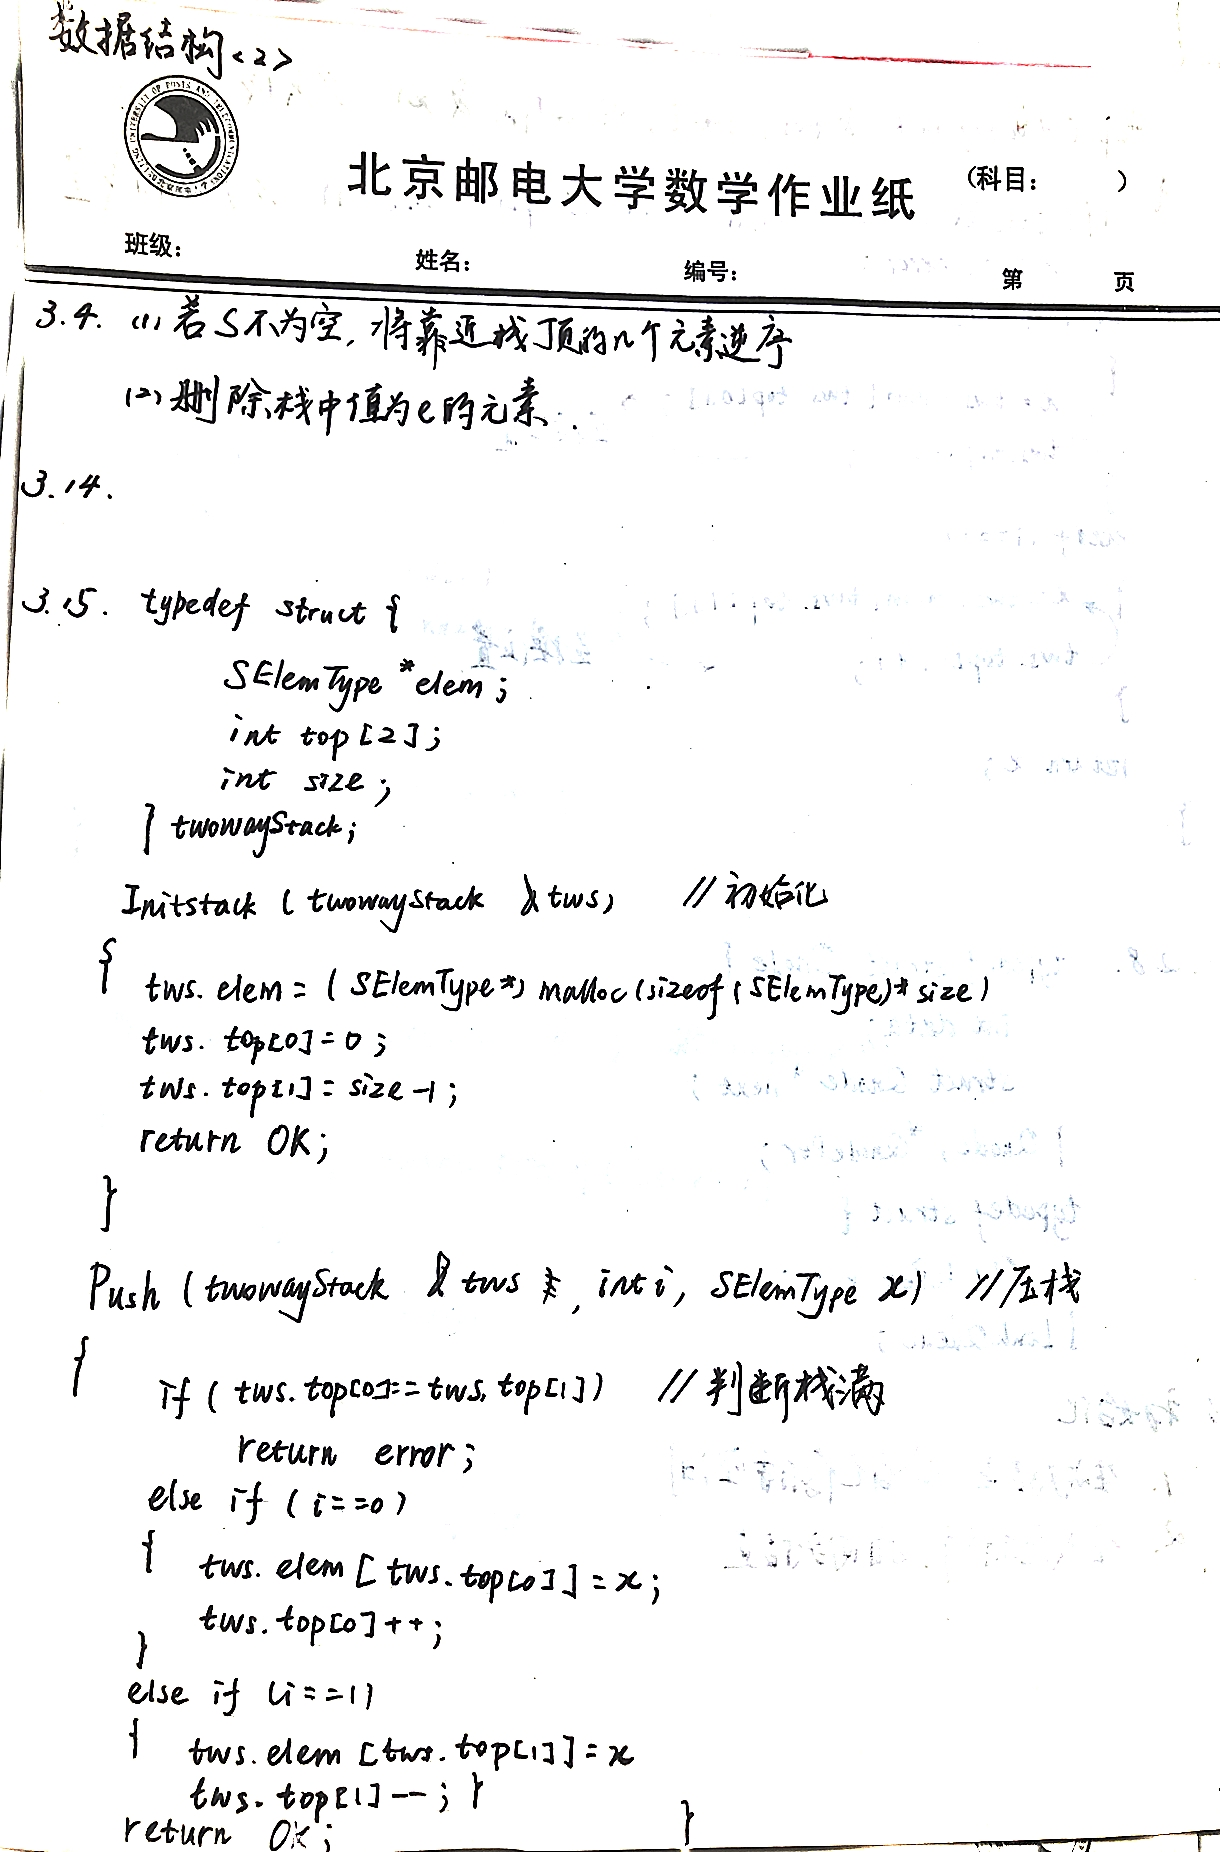 数据结构<2>
北京邮电大学数学作业纸 (科目: )
班级: 姓名: 编号: 第 页
3.4. (1) 若S不为空, 将靠近栈顶的n个元素逆序
(2) 删除栈中值为e的元素.
3.14.
3.15. typedef struct {
SElemType *elem;
int top[2];
int size;
} twowayStack;
Initstack (twowayStack &tws) //初始化
{
tws. elem = (SElemType*) malloc(sizeof(SElemType)* size)
tws. top[0]=0;
tws. top[1]= size-1;
return OK;
}
Push (twowayStack & tws, int i, SElemType x) //压栈
{
if (tws. top[0]==tws. top[1]) //判断栈满
return error;
else if (i==0)
{ tws. elem [tws. top[0]]=x;
tws. top[0]++;
}
else if (i==1)
{ tws. elem [tws. top[1]]=x
tws. top[1]--; }
return OK; }